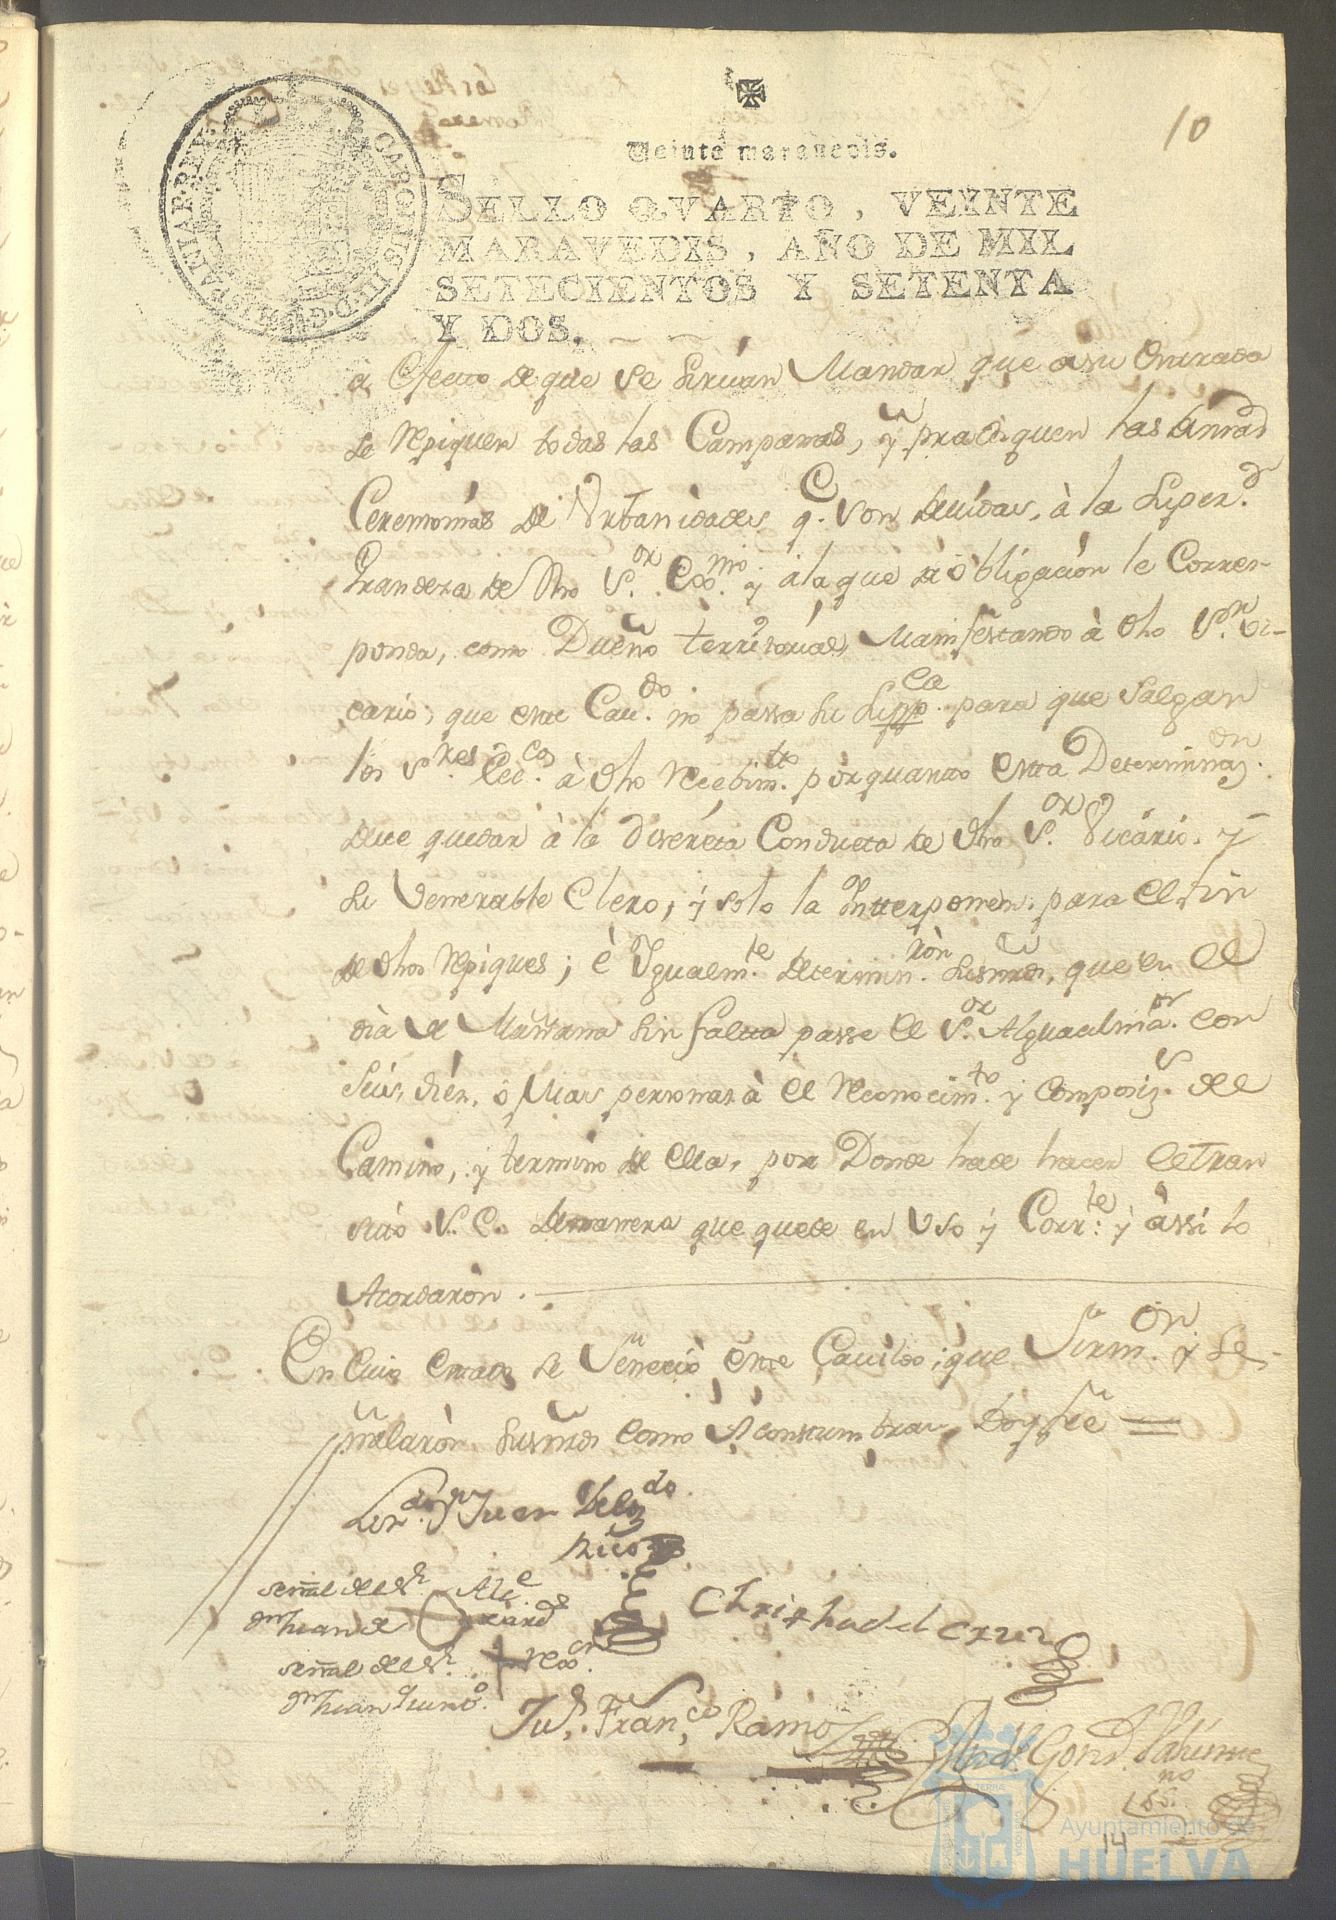 10
Veinte maravedis.
SELLO QVARTO, VEINTE
MARAVEDIS, AÑO DE MIL
SETECIENTOS Y SETENTA
Y DOS.
CAROLUS III D G HISPANIAR REX
à efecto de que se sirvan Mandar que asu Entrada
se Repiquen todas las Campanas, y practiquen las
Ceremonias de Vrbanidades q. son devidas, à la Super.or
Grandeza de dho S.or Exmo. y ala que de obligacion le Corres-
ponda, como Dueño territorial, Manifestando à dho S.or Vi-
cario, que este Cav.do no passa su Supp.ca para que salgan
los S.res Ecc.cos à dho Recebim.to porquanto esta Determinaz.on
deve quedar à la discreta Conducta de dho S.or Vicario, y
su Venerable Clero, y solo la Interponen para el fin
de dhos Repiques; è Ygualm.te determin.ròn susmrds, que en el
dia de Mañana sin falta passe el S.or Alguacilma.or con
seis, diez, ò Mas personas à el Reconocim.to y Composiz. del
Camino, y termino de ella, por Donde hade hacer el Tran
sito S. E. demanera que quede en Vso y Corr.te y àssi lo
Acordaròn.
En Cuio estado se Feneciò este Cavildo, que Firm.on y Se-
ñalaròn susmrds como Acostumbran, Doy fee =
Lizn.do Dn Juan Delg.do
Rico
señal de el S.r Alc.e
Dn Juan de
señal de el S.r Reg.or
Dn Juan
Christhoval Cruz
Ju.n Fran.co Ramos
Gonz.
ss.no
14
Ayuntamiento de
HUELVA